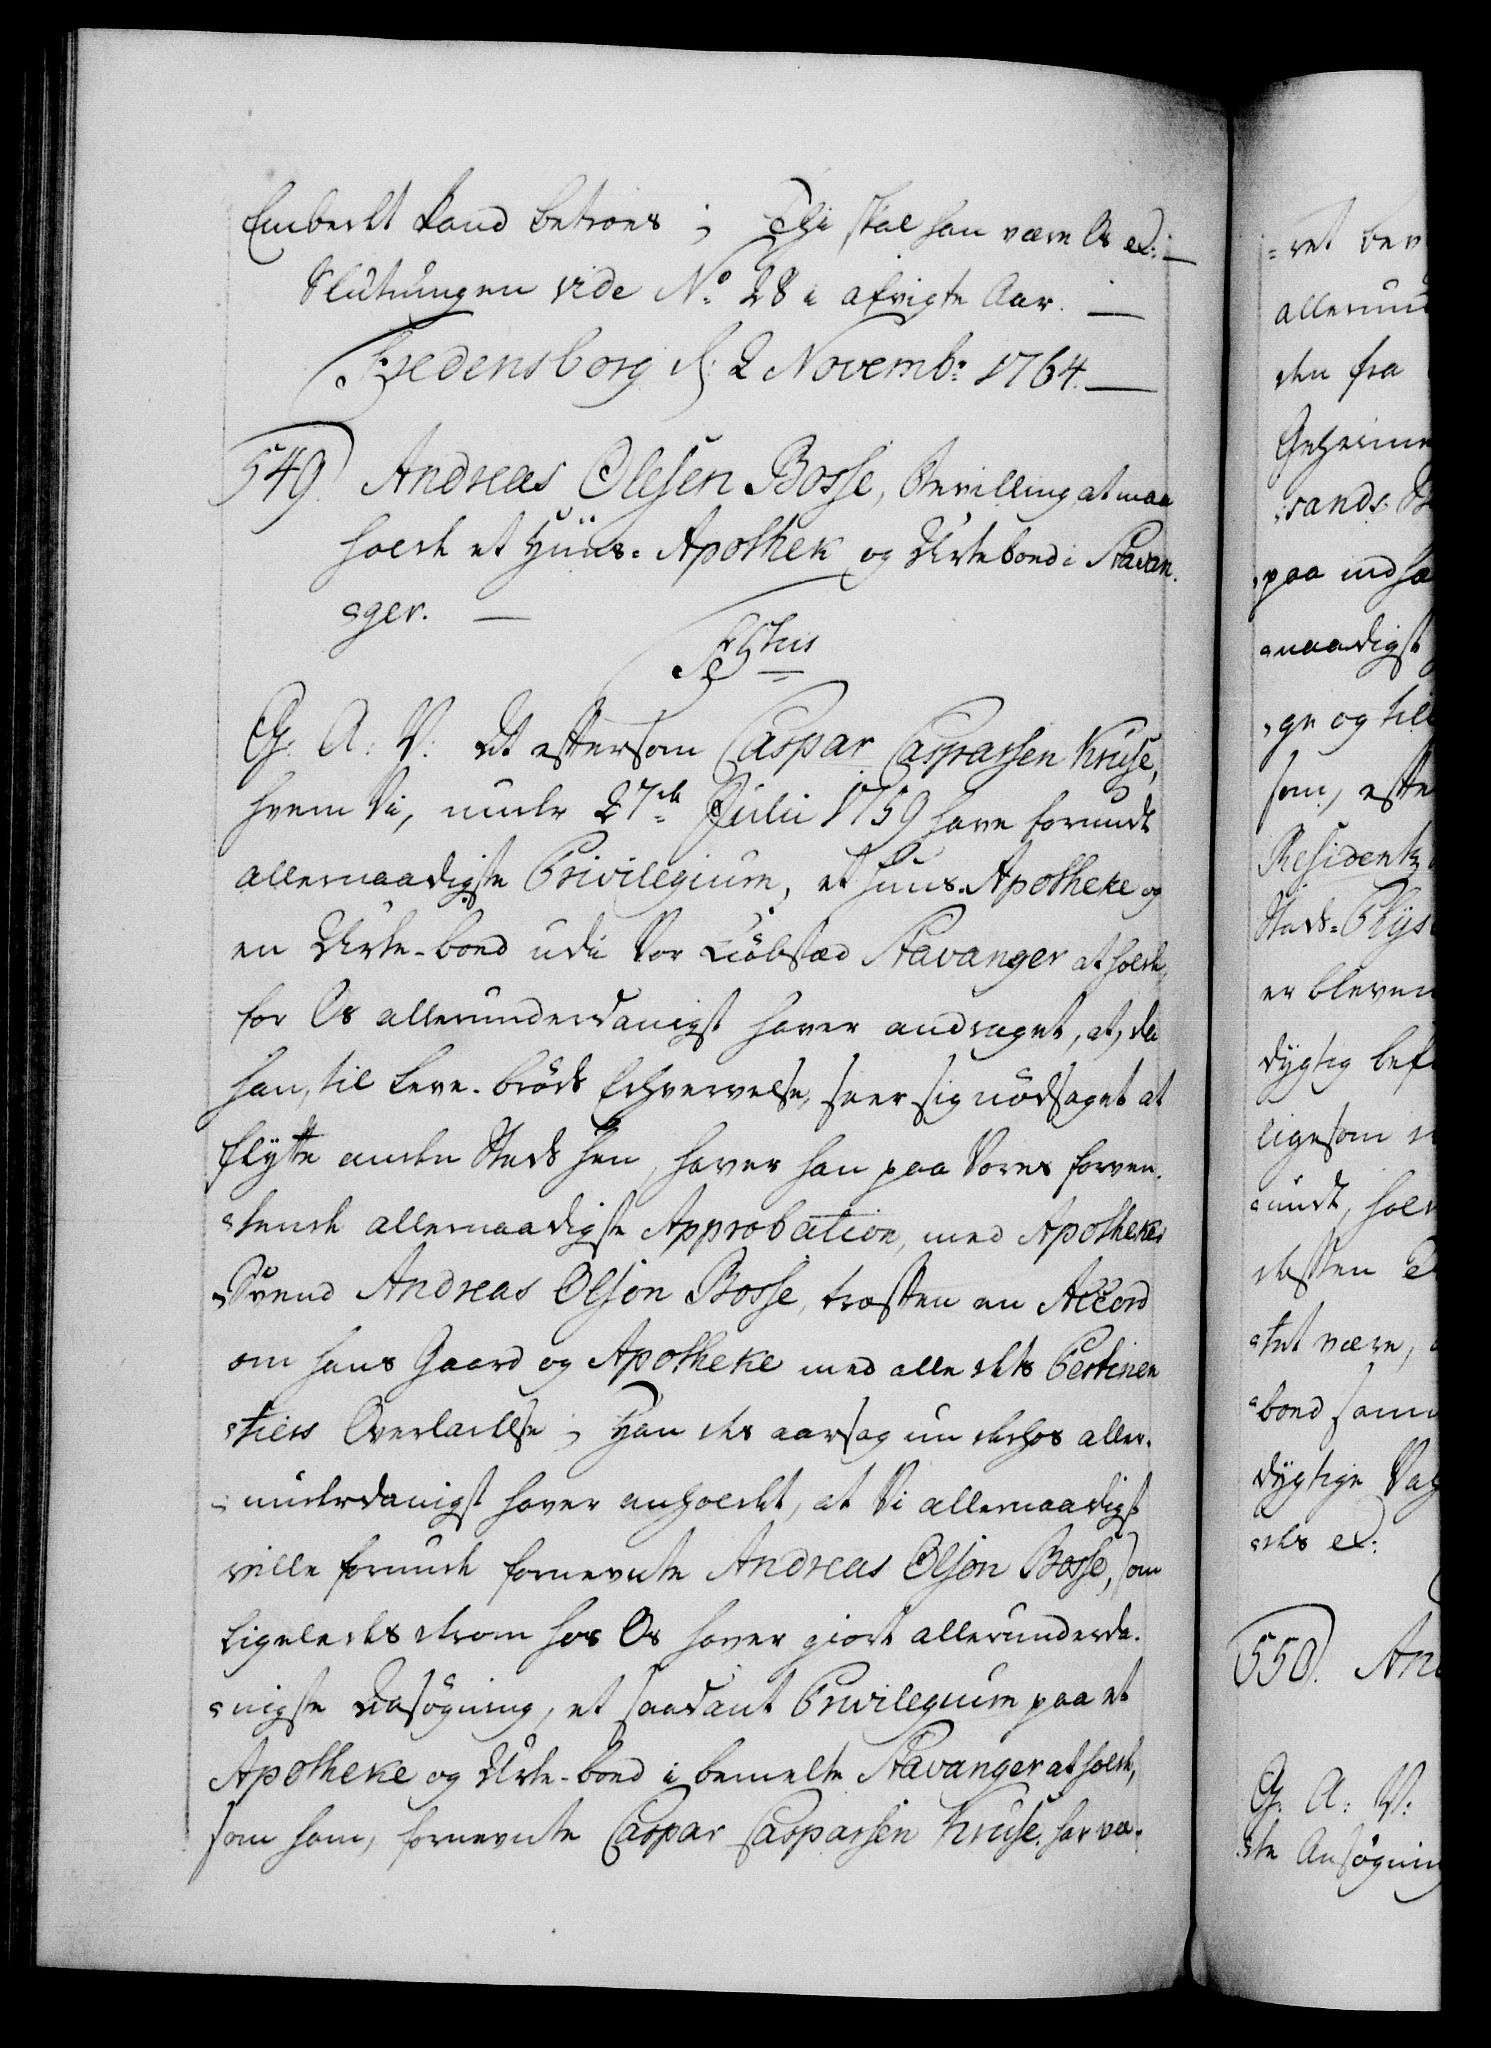 Embedet kand betroes; Thi skal han være Os &:
Slutningen vide No. 28 i afvigte Aar.
Fredensborg d: 2 Novemb: 1764.
549. Andreas Olesen Bosse, Bevilling at maa
holde et Huus-Apothek og Urteboed i Stavan-
ger.
G: A: V: At eftersom Caspar Casparsen Kruse,
hvem Vi, under 27de Julii 1759 have forundt
allernaadigste Privilegium, et Huus-Apotheke og
en Urte-boed udi Vor Kiöbstæd Stavanger at holde,
for Os allerunderdanigst haver andraget, at, da
han, til Leve-bröds Erhvervelse, seer sig nödsaget at
flytte anden Steds hen, haver han paa Vores forven-
tende allernaadigste Approbation, med Apotheker
Svend Andreas Olson Bosse, truffen en Accord
om hans Gaard og Apotheke med alle dets Pertinen
tiers Overladelse; Han des aarsag nu derhos aller-
underdanigst haver anholdet, at Vi allernaadigst
ville forunde fornevnte Andreas Olson Bosse, som
ligeledes derom hos Os haver giort allerunderda-
nigste Ansögning, et saadant Privilegium paa et
Apotheke og Urte-boed i bemelte Stavanger at holde,
som ham, fornevnte Caspar Casparsen Kruse, har væ-
ret bev
allerund
den fra
Geheime
sands: B
paa indhæ
naadigst
ge og till
som, efte
Residentz
Stads-Phys
er bleven
dygtig bef
ligesom
undt, hold
desten
tet være,
boed sam
dygtige Va
des &:
550. And
G: A: V:
ste Ansögnin